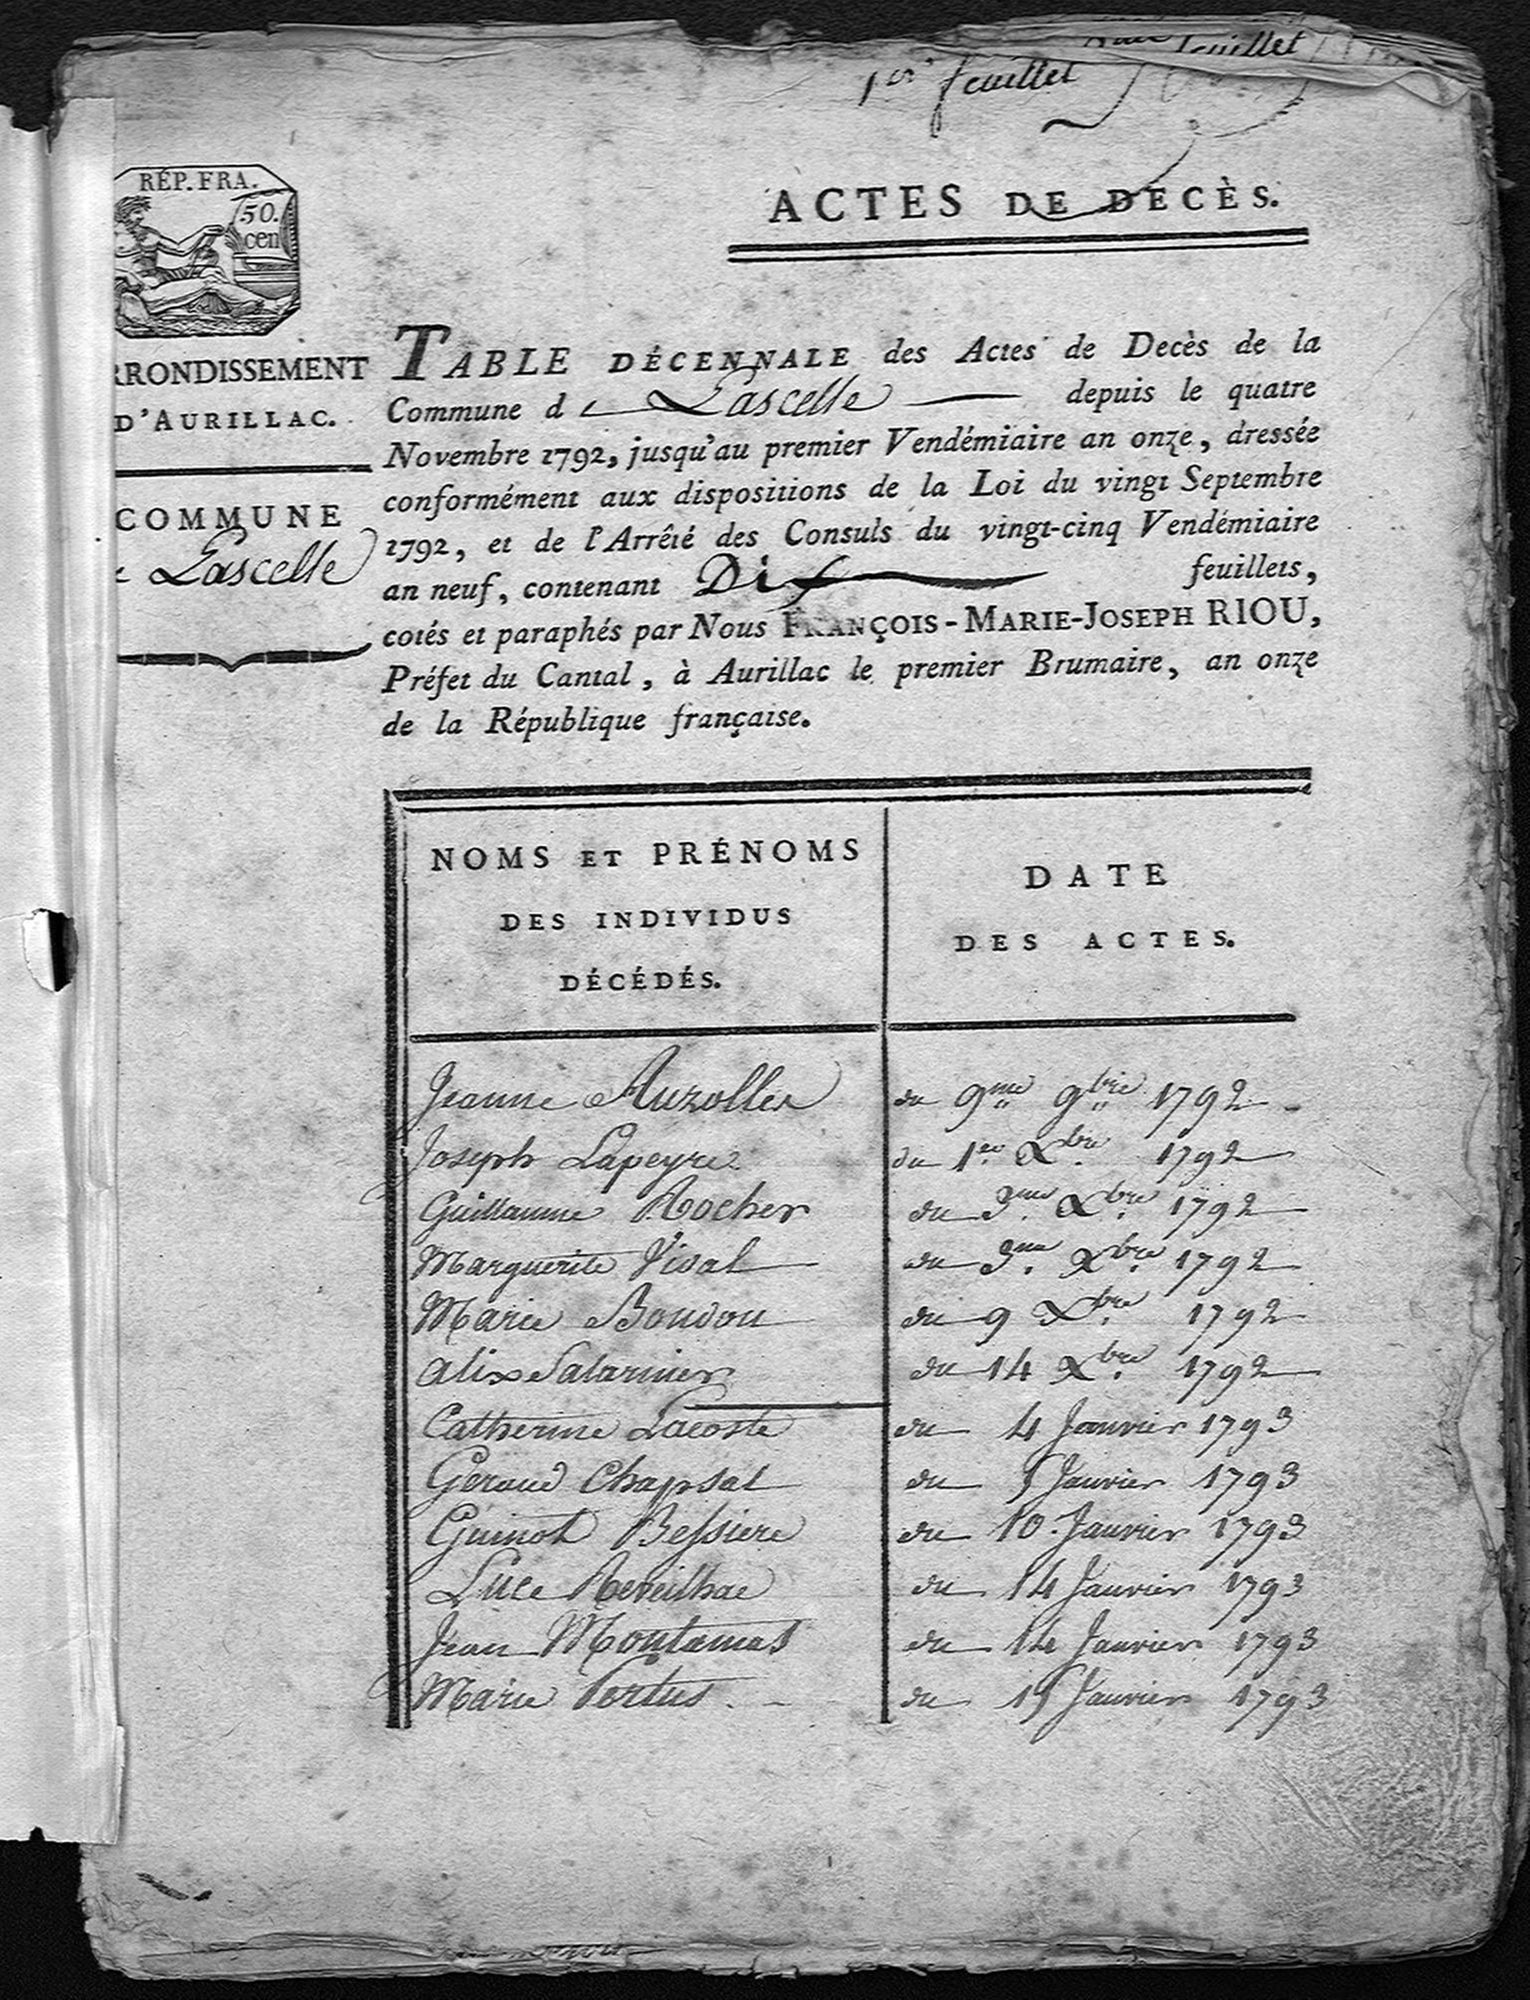 feuillet
1er feuillet
RÉP. FRA.
50.
cen
ACTES DE DECÈS.
RRONDISSEMENT
D'AURILLAC.
COMMUNE
Lascelle
TABLE DÉCENNALE des Actes de Decès de la
Commune d e Lascelle depuis le quatre
Novembre 1792, jusqu'au premier Vendémiaire an onze, dressée
conformément aux dispositions de la Loi du vingt Septembre
1792, et de l'Arrêté des Consuls du vingt-cinq Vendémiaire
an neuf, contenant Dix feuillets,
cotés et paraphés par Nous FRANÇOIS-MARIE-JOSEPH RIOU,
Préfet du Cantal, à Aurillac le premier Brumaire, an onze
de la République française.
NOMS ET PRÉNOMS
DES INDIVIDUS
DÉCÉDÉS.
DATE
DES ACTES.
Jeanne Auzolles du 9me 9bre 1792
Joseph Lapeyre du 1er Xbre 1792
Guillaume Rocher du 3me Xbre 1792
Marguerite Vidal du 3me Xbre 1792
Marie Boudou du 9 Xbre 1792
Alix Salarnier du 14 Xbre 1792
Catherine Lacoste du 4 Janvier 1793
Geraud Chapsal du 5 Janvier 1793
Guinot Bessiere du 10 Janvier 1793
Luce Reveilhac du 14 Janvier 1793
Jean Montamat du 14 Janvier 1793
Marie Vertus du 15 Janvier 1793